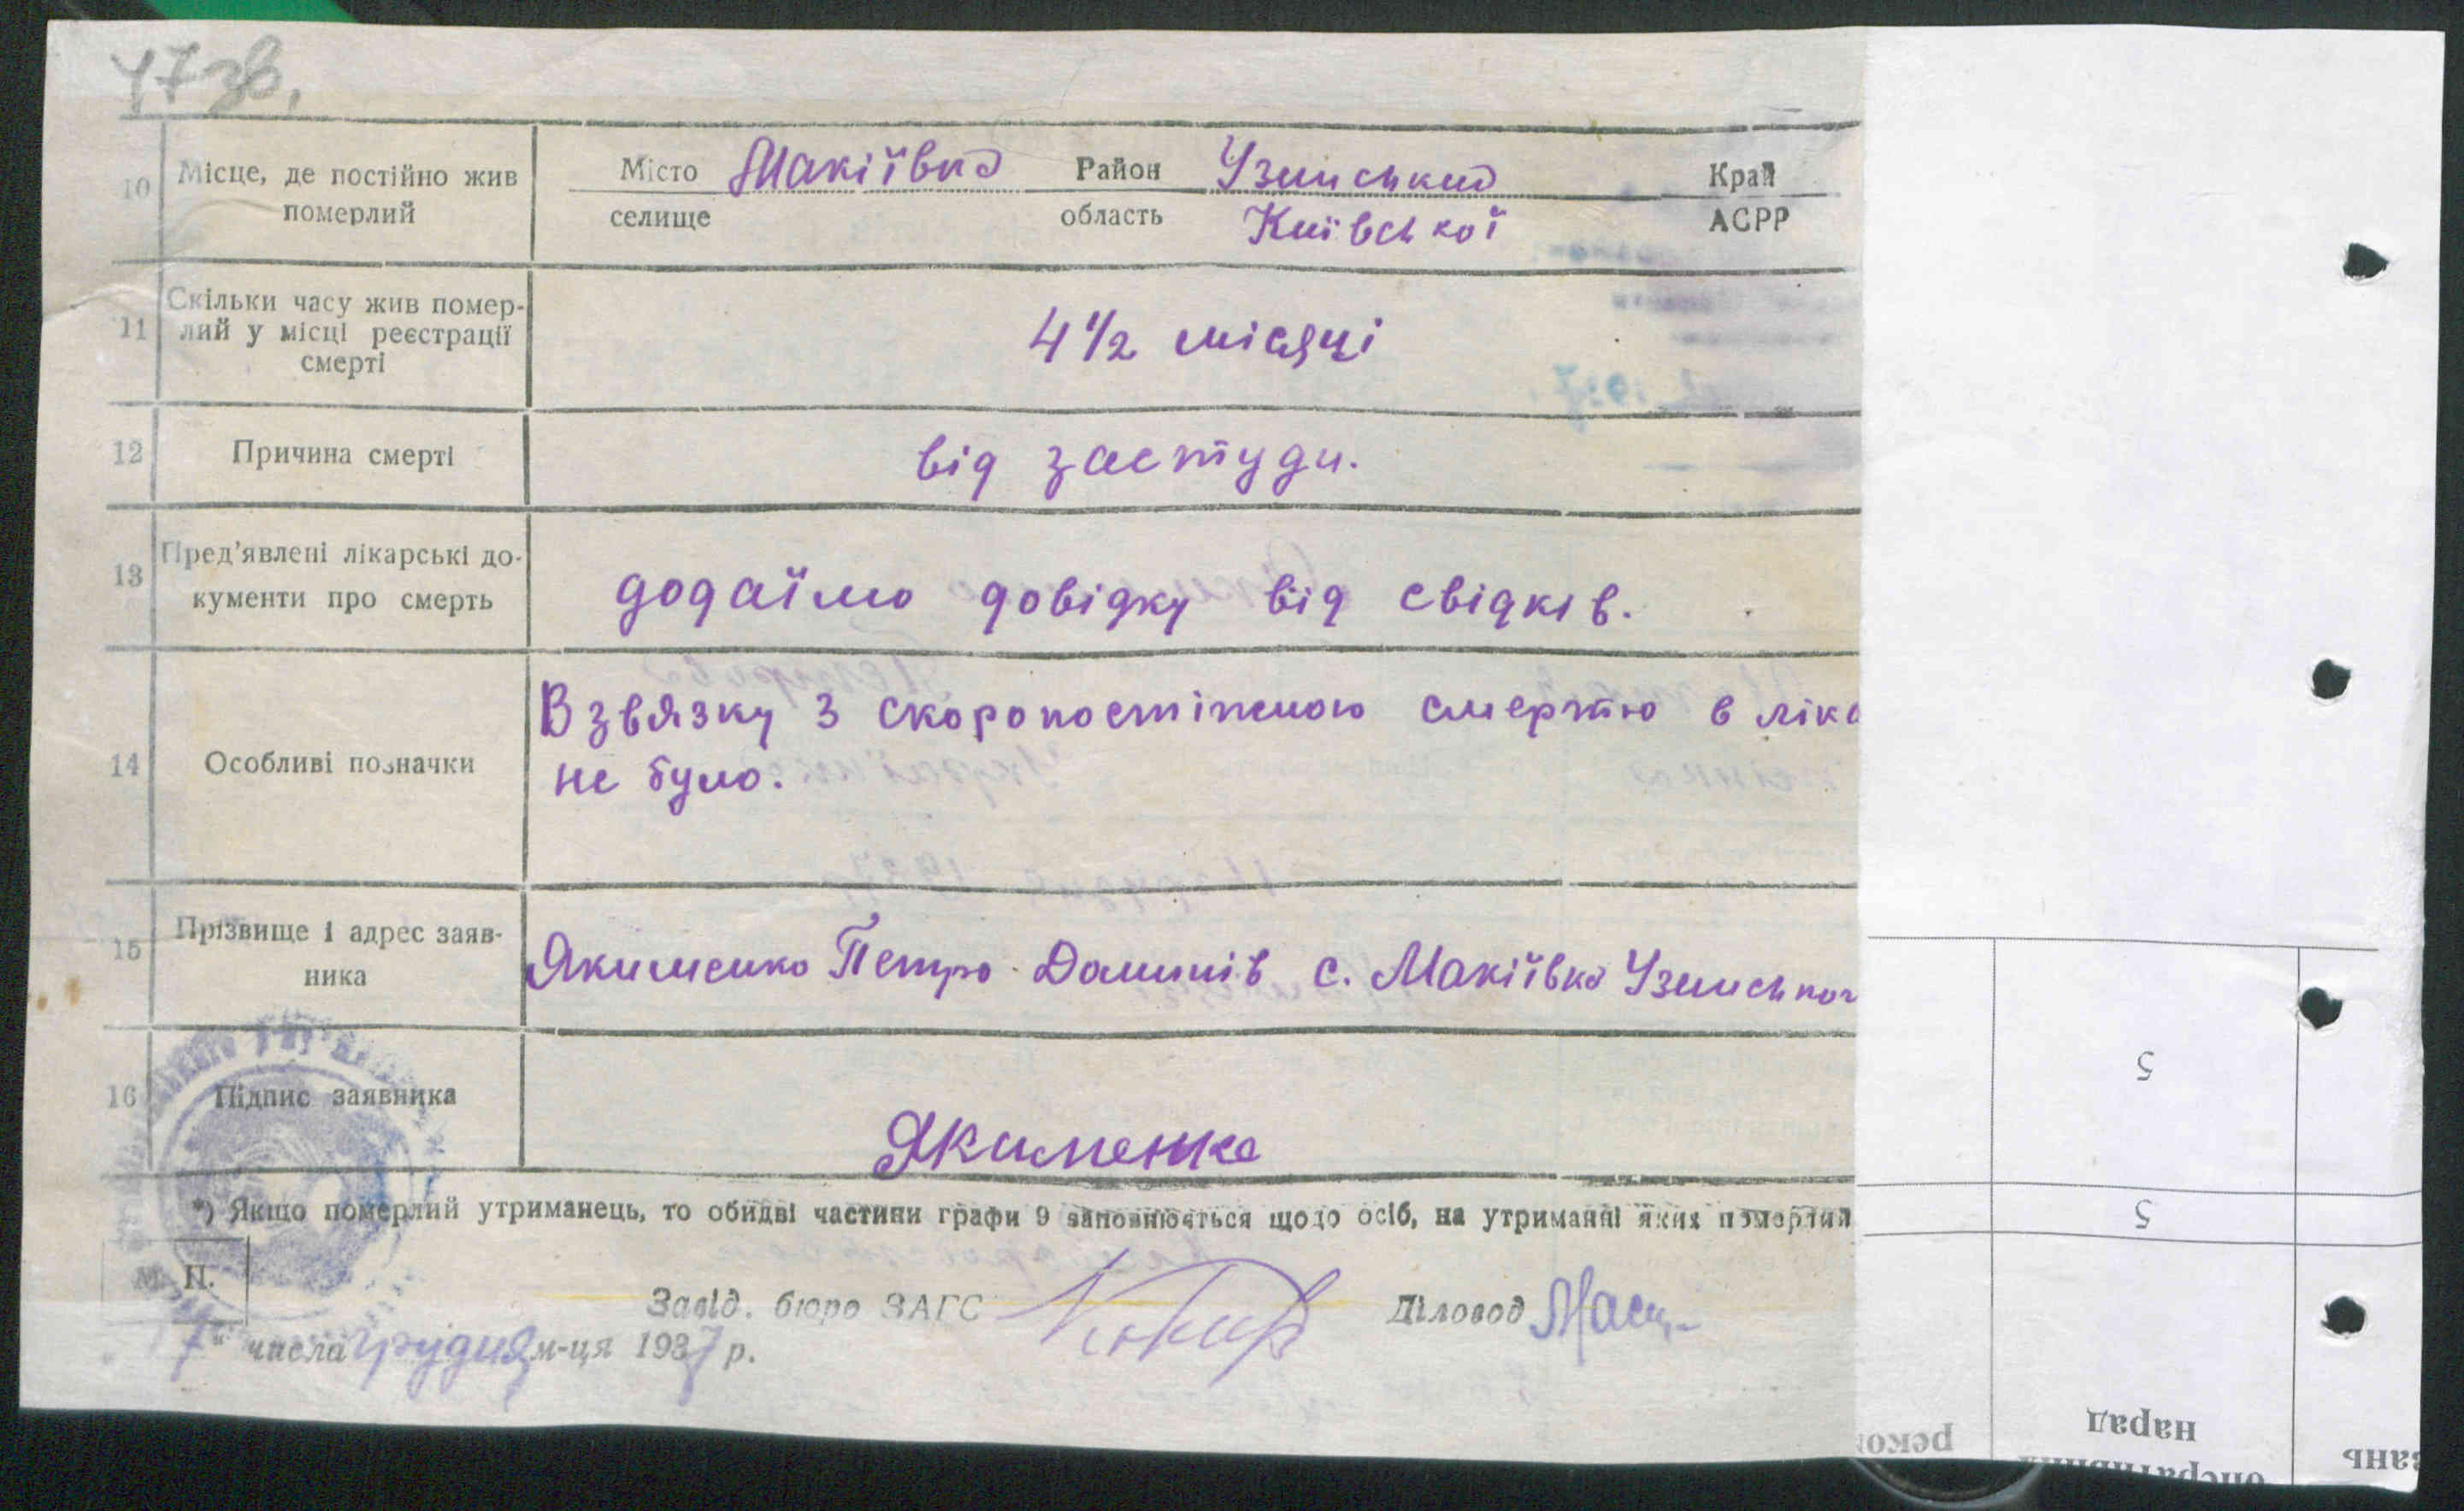 47 зв.
10 Місце, де постійно жив померлий
Місто Макіївка Район Узинський Край
селище область Київської АСРР
11 Скільки часу жив помер-
лий у місці реєстрації
смерті
4 1/2 місяці
12 Причина смерті
від застуди.
13 Пред'явлені лікарські до-
кументи про смерть
додаїмо довідку від свідків.
14 Особливі позначки
В звязку з скоропостіжною смертю в ліка
не було.
15 Прізвище і адрес заяв-
ника
Якименко Петро с. Макіївка Узинськог
16 Підпис заявника
Якименко
*) Якщо померлий утриманець, то обидві частини графи 9 заповнюються щодо осіб, на утриманні яких померлий
М. П.
Завід. бюро ЗАГС
Діловод
7" числа грудня м-ця 1937 р.
5
5
нарад